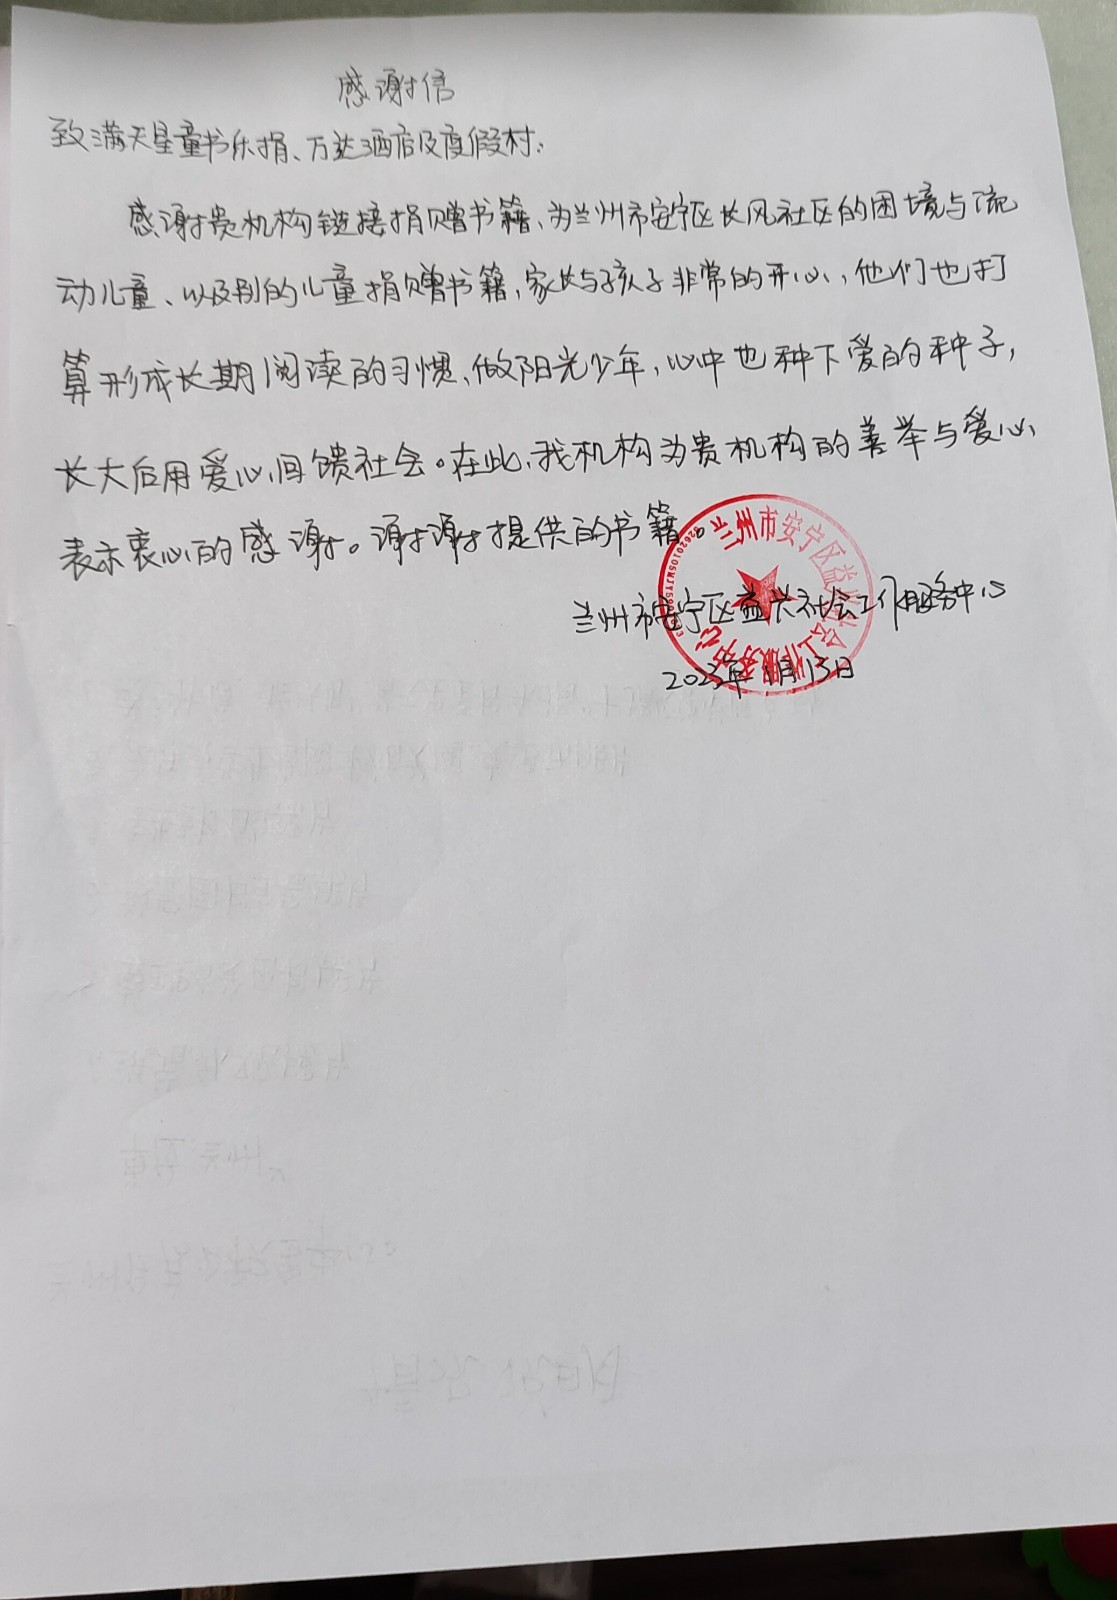 感谢信
致满天星童书乐捐、万达酒店及度假村:
感谢贵机构链接捐赠书籍、为兰州市安宁区长风社区的困境与流
动儿童、以及别的儿童捐赠书籍,家长与孩子非常的开心,他们也打
算形成长期阅读的习惯、做阳光少年,心中也种下爱的种子,
长大后用爱心回馈社会。在此,我机构为贵机构的善举与爱心
表示衷心的感谢。谢谢提供的书籍。
兰州市安宁区益兴社会工作服务中心
2023年11月13日
兰州市安宁区益兴社会工作服务中心